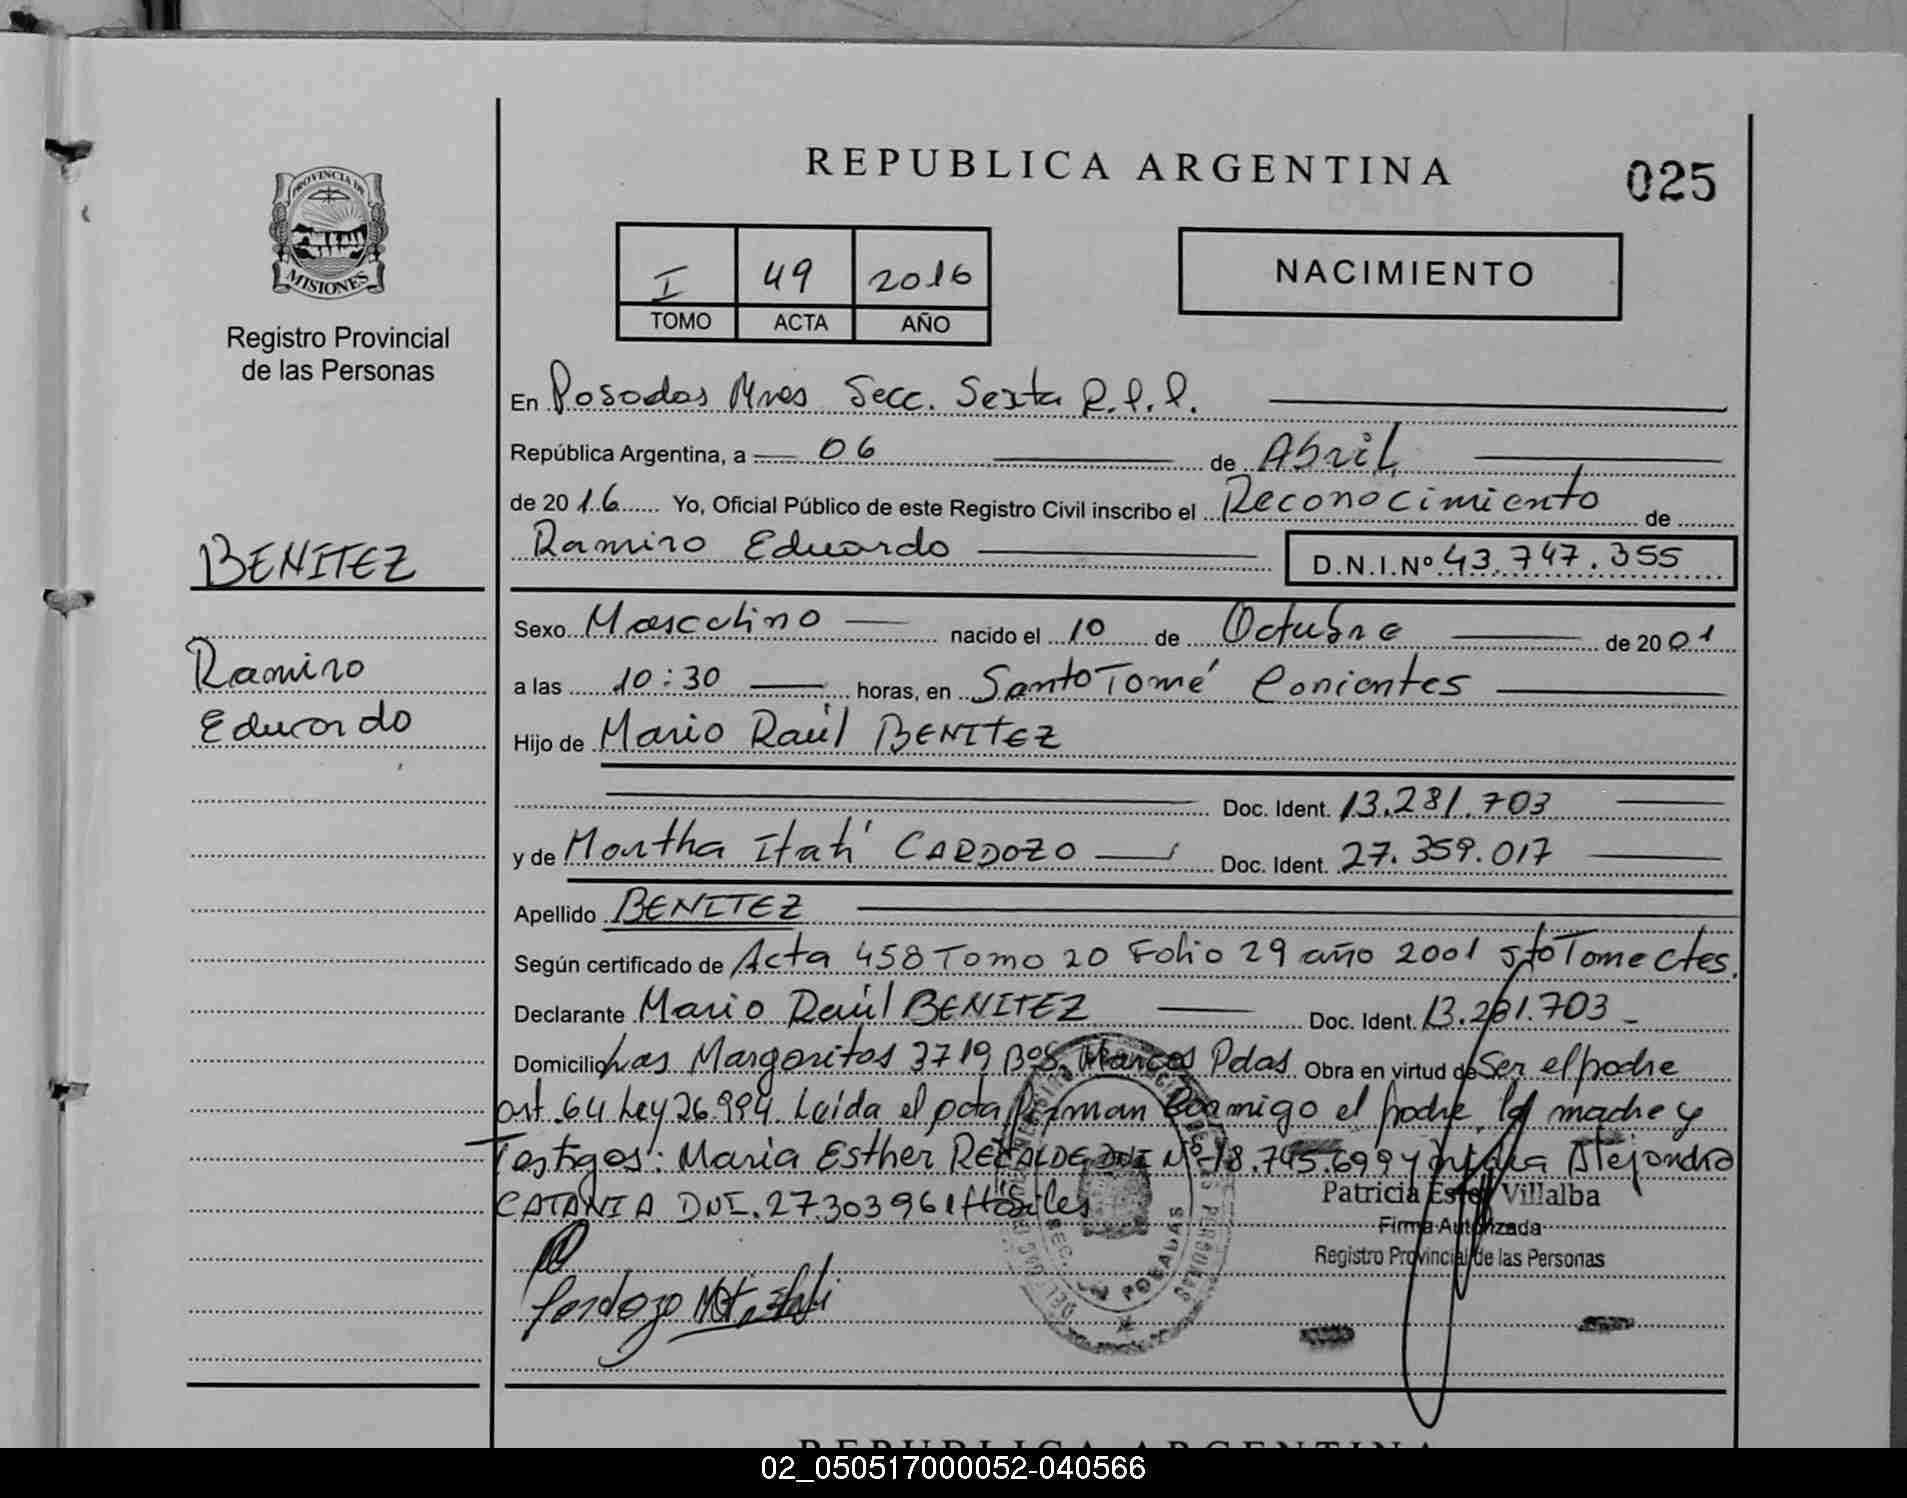 REPUBLICA ARGENTINA
025
PROVINCIA DE
MISIONES
Registro Provincial
de las Personas
I 49 2016
TOMO ACTA AÑO
NACIMIENTO
En Posadas Mnes Secc. Sexta R.P.P.
República Argentina, a 06 de Abril
de 2016 Yo, Oficial Público de este Registro Civil inscribo el Reconocimiento de
Ramiro Eduardo D.N.I.Nº 43.747.355
BENITEZ
Ramiro
Eduardo
Sexo Masculino nacido el 10 de Octubre de 2001
a las 10:30 horas, en Santo Tomé Corrientes
Hijo de Mario Raúl BENITEZ
Doc. Ident. 13.281.703
y de Martha Itatí CARDOZO Doc. Ident. 27.359.017
Apellido BENITEZ
Según certificado de Acta 458 Tomo 20 Folio 29 año 2001 Sto Tome Ctes.
Declarante Mario Raúl BENITEZ Doc. Ident. 13.281.703
Domicilio Las Margaritas 3719 Bº S. Marcos Pdas. Obra en virtud de Ser el padre
art. 64 Ley 26.994. Leída el acta firman conmigo el padre, la madre y
Testigos: Maria Esther RECALDE DNI Nº 18.745.699 y Alejandra
CATANIA DNI. 27303961 Hábiles
Patricia Ester Villalba
Firma Autorizada
Registro Provincial de las Personas
POSADAS
REPUBLICA ARGENTINA
02_050517000052-040566